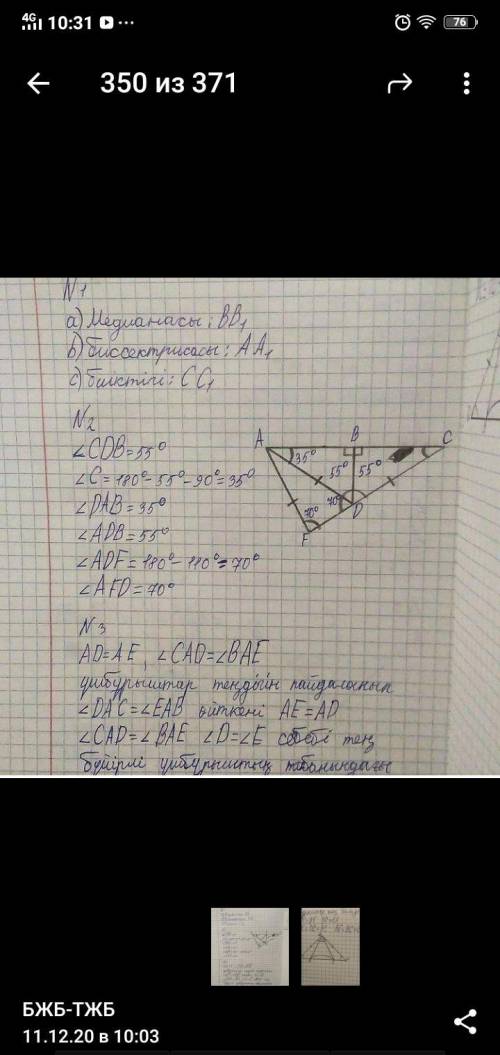 4G 10:31
76
350 из 371
N1
а) Медианасы: BB₁
b) биссектрисасы: AA₁
c) биіктігі: CC₁
N2
∠CDB=55°
∠C=180°-55°-90°=35°
∠DAB=35°
∠ADB=55°
∠ADF=180°-110°=70°
∠AFD=70°
A B C
35° 55° 55°
70° 70° D
F
N3
AD=AE, ∠CAD=∠BAE
үшбұрыштар теңдігін пайдаланып
∠DAC=∠EAB өйткені AE=AD
∠CAD=∠BAE ∠D=∠E себебі тең
бүйірлі үшбұрыштың табанындағы
БЖБ-ТЖБ
11.12.20 в 10:03